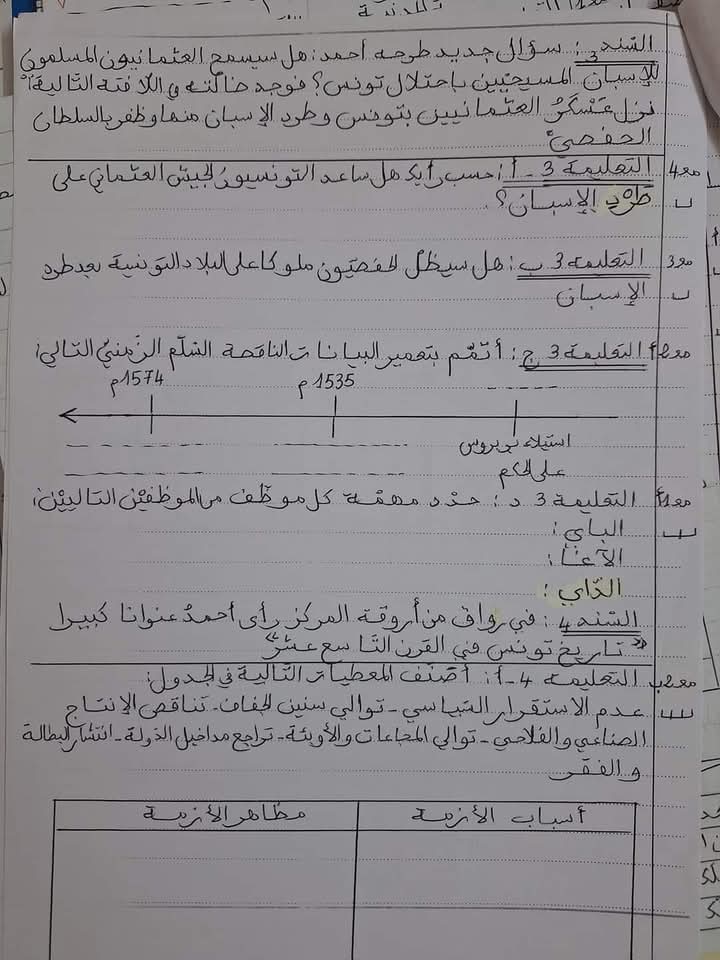 السّند 3: سؤال جديد طرحه أحمد: هل سيسمح العثمانيون المسلمون
للإسبان المسيحيين باحتلال تونس؟ فوجد ضالّته في اللّافتة التّالية:"
نزل عسكر العثمانيين بتونس وطرد الإسبان منها وظفر بالسلطان
الحفصيّ"
مع4 التعليمة 3 - أ: حسب رأيك هل ساعد التونسيون الجيش العثماني على
طرد الإسبان؟
مع3 التعليمة 3 ب: هل سيظلّ الحفصيّون ملوكا على البلاد التونسية بعد طرد
الإسبان
مع2أ التعليمة 3 ج: أتمّم بتعمير البيانات الناقصة السّلّم الزّمنيّ التالي:
1535م 1574م
استيلاء بربروس
على الحكم
مع1أ التعليمة 3 د: حدّد مهمّة كلّ موظّف من الموظّفين التاليين:
الباي:
الآغا:
الدّاي:
السّند 4: في رواق من أروقة المركز رأى أحمد عنوانا كبيرا
«تاريخ تونس في القرن التّاسع عشر»
مع2ب التعليمة 4-أ: أصنّف المعطيات التّالية في الجدول:
عدم الاستقرار السّياسي - توالي سنين الجفاف - تناقص الإنتاج
الصناعي والفلاحي - توالي المجاعات والأوبئة - تراجع مداخيل الدولة - انتشار البطالة
والفقر
أسباب الأزمة مظاهر الأزمة